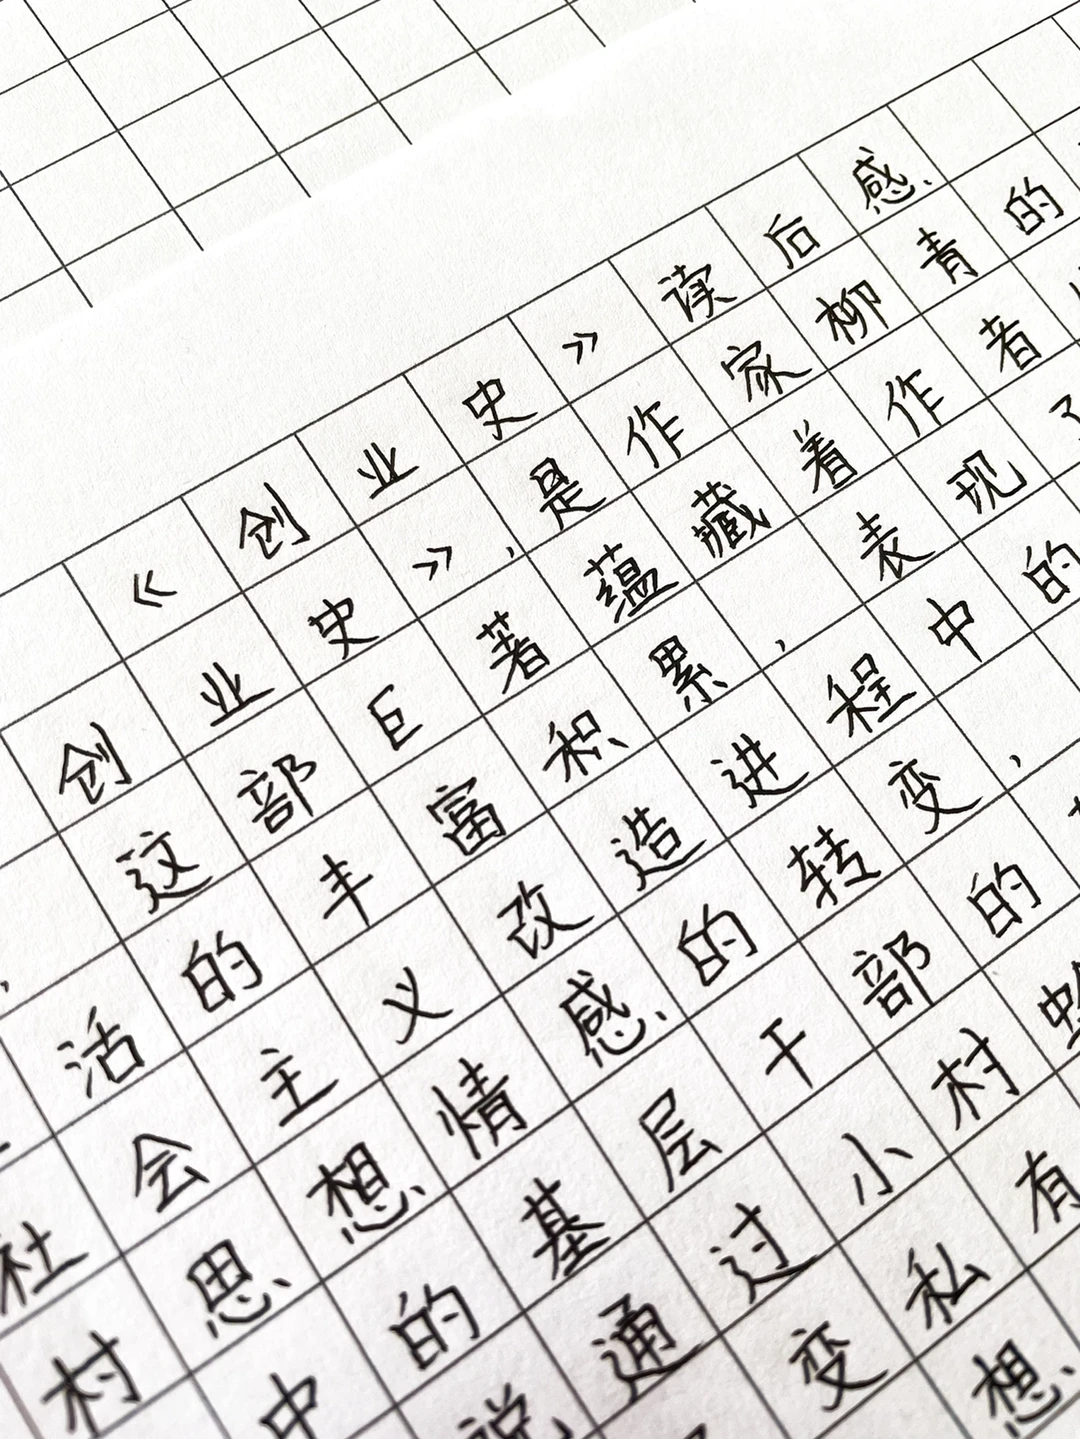 《创业史》读后感
创业史》,是作家柳青的
,这部巨著蕴藏着作者
活的丰富积累,表现了
社会主义改造进程中的
村思想情感的转变,
中的基层干部的
说通过小村
变私有
想